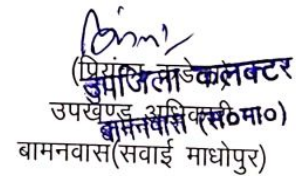 (प्रियंका कंडेरा)
उपजिला कलक्टर
उपखण्ड अधिकारी
बामनवास (स०मा०)
बामनवास(सवाई माधोपुर)